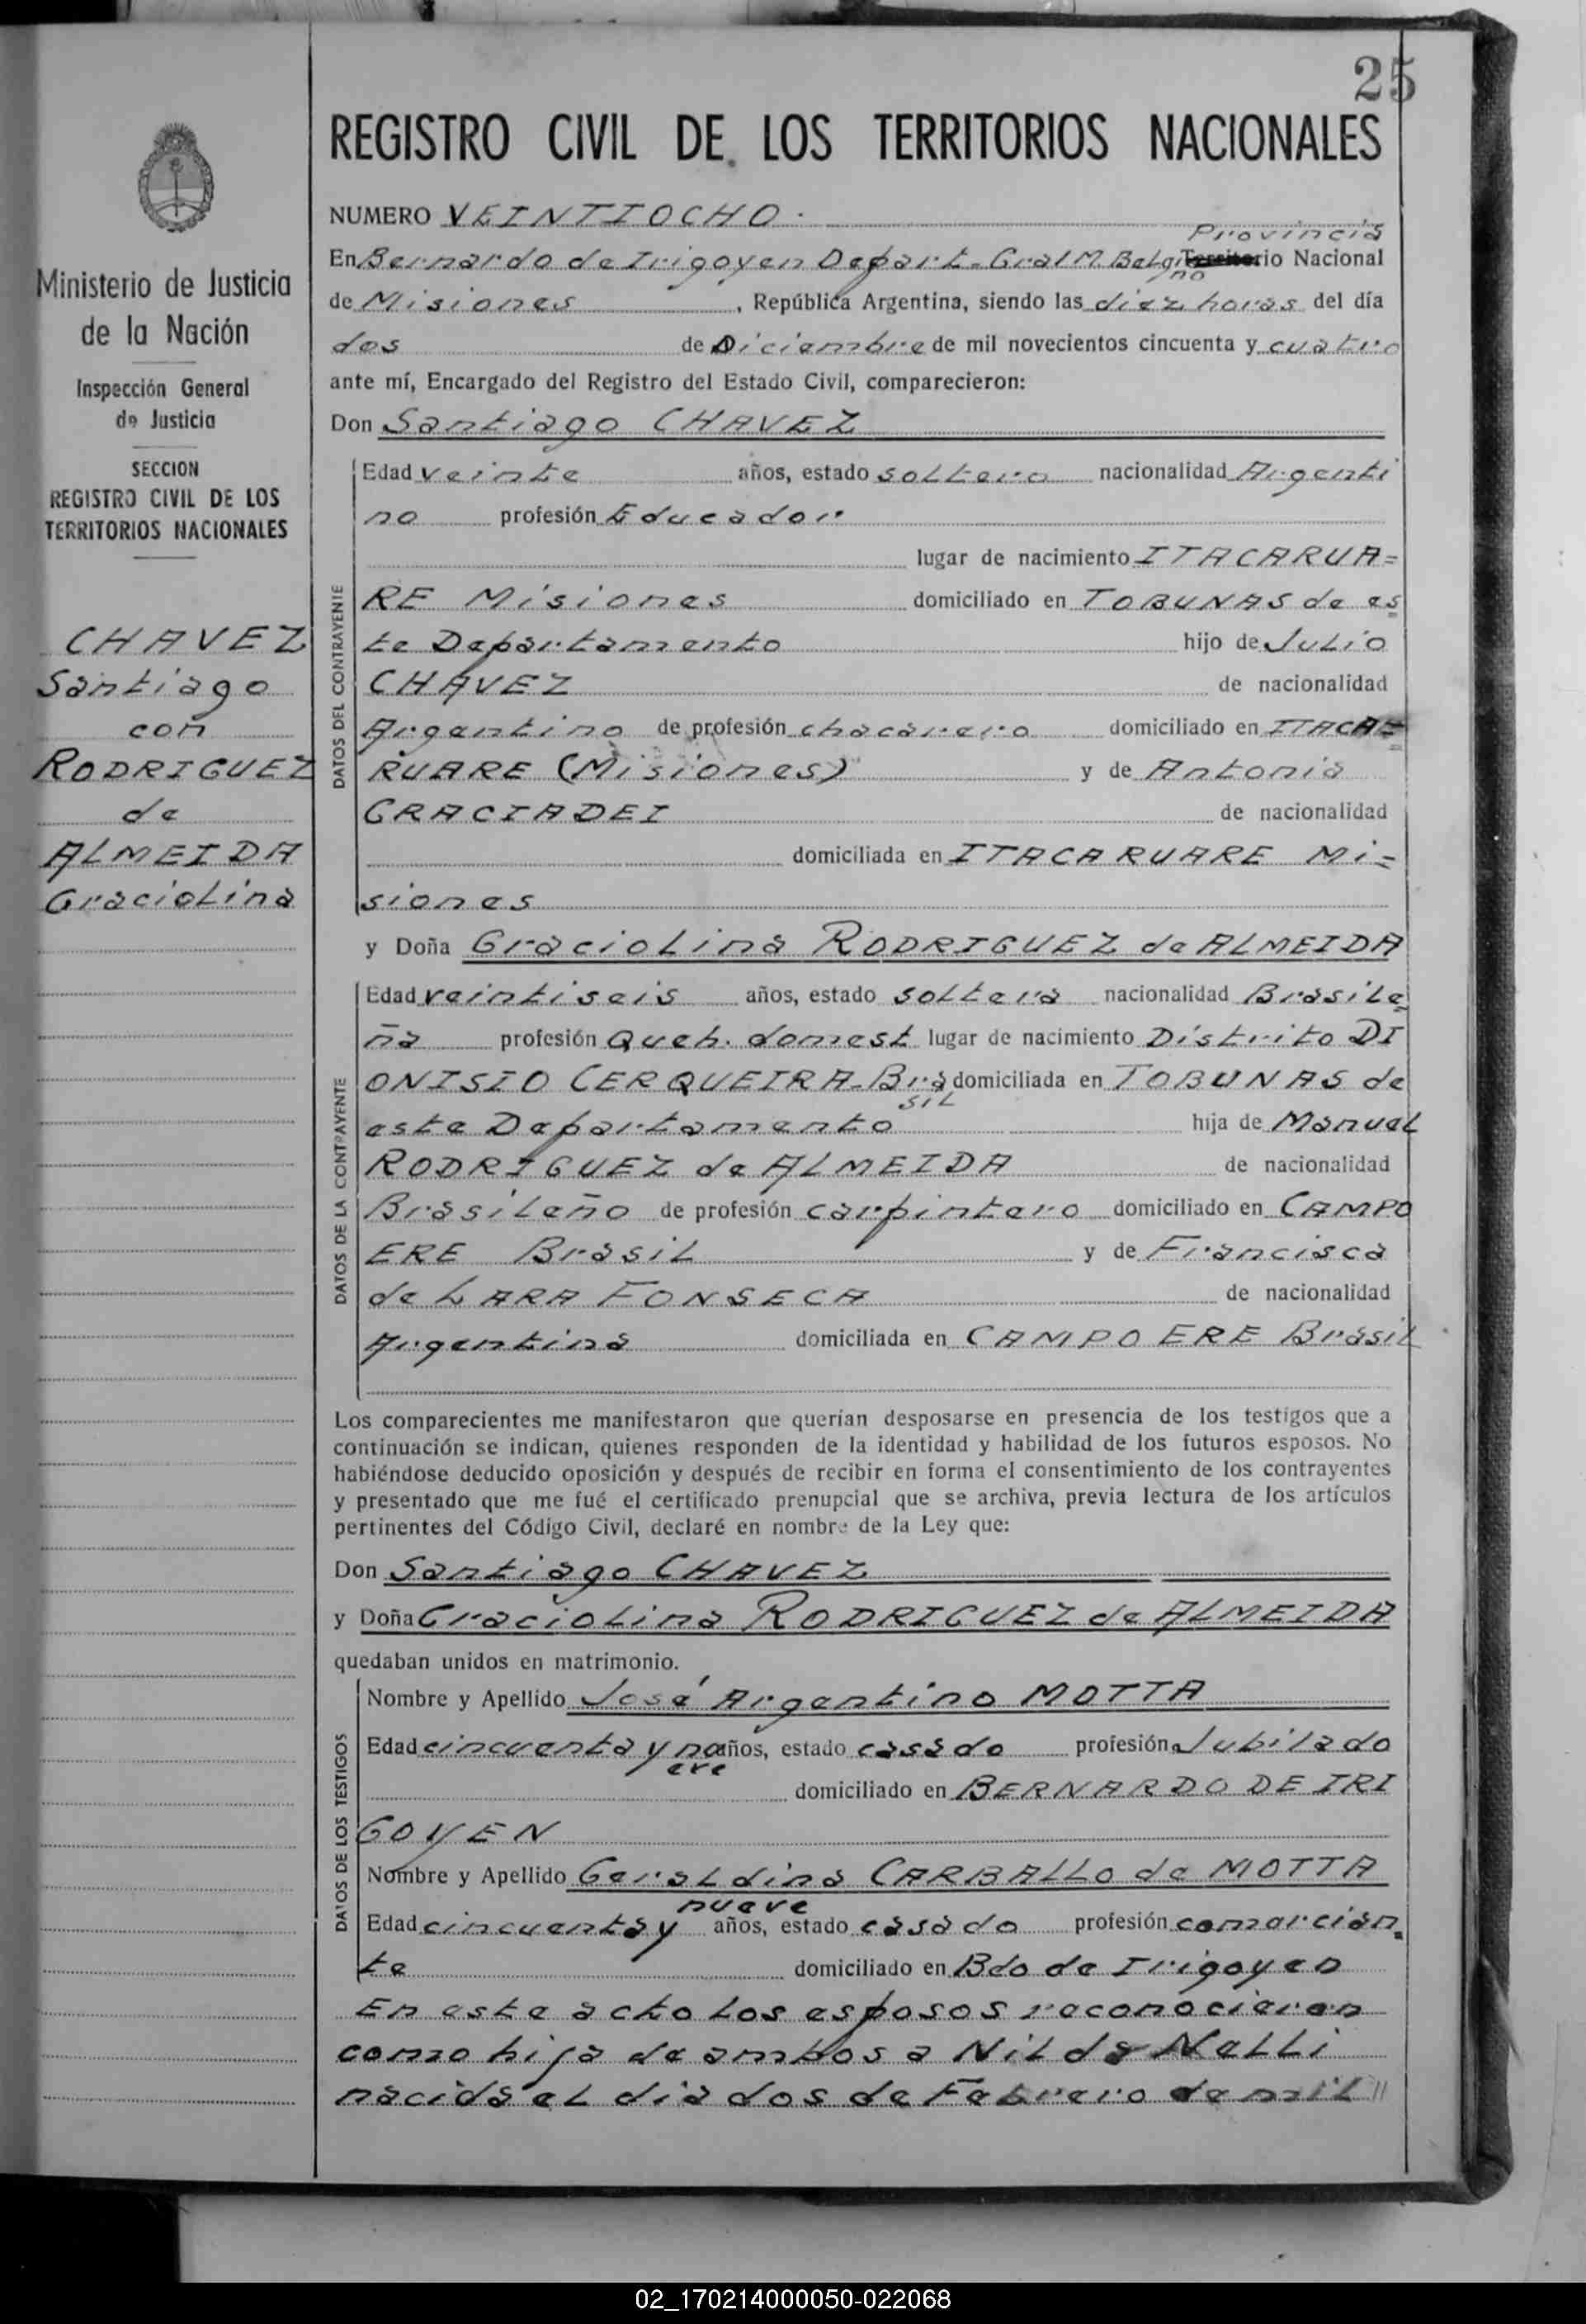 25
REGISTRO CIVIL DE LOS TERRITORIOS NACIONALES
Ministerio de Justicia
de la Nación
Inspección General
de Justicia
SECCION
REGISTRO CIVIL DE LOS
TERRITORIOS NACIONALES
CHAVEZ
Santiago
con
RODRIGUEZ
de
ALMEIDA
Graciolina
NUMERO VEINTIOCHO.
Provincia
En Bernardo de Irigoyen Depart. Gral M. Belgrano Territorio Nacional
de Misiones, República Argentina, siendo las diez horas del día
dos de Diciembre de mil novecientos cincuenta y cuatro
ante mí, Encargado del Registro del Estado Civil, comparecieron:
Don Santiago CHAVEZ
DATOS DEL CONTRAYENTE
Edad veinte años, estado soltero nacionalidad Argenti
no profesión Educador
lugar de nacimiento ITACARUA=
RE Misiones domiciliado en TOBUNAS de es
te Departamento hijo de Julio
CHAVEZ de nacionalidad
Argentino de profesión chacarero domiciliado en ITACA=
RUARE (Misiones) y de Antonia
GRACIADEI de nacionalidad
domiciliada en ITACARUARE Mi=
siones
y Doña Graciolina RODRIGUEZ de ALMEIDA
DATOS DE LA CONTRAYENTE
Edad veintiseis años, estado soltera nacionalidad Brasile
ña profesión Queh. domest lugar de nacimiento Distrito DI
ONISIO CERQUEIRA-Brasil domiciliada en TOBUNAS de
este Departamento hija de Manuel
RODRIGUEZ de ALMEIDA de nacionalidad
Brasileño de profesión carpintero domiciliado en CAMPO
ERE Brasil y de Francisca
de LARA FONSECA de nacionalidad
Argentina domiciliada en CAMPO ERE Brasil
Los comparecientes me manifestaron que querían desposarse en presencia de los testigos que a
continuación se indican, quienes responden de la identidad y habilidad de los futuros esposos. No
habiéndose deducido oposición y después de recibir en forma el consentimiento de los contrayentes
y presentado que me fué el certificado prenupcial que se archiva, previa lectura de los artículos
pertinentes del Código Civil, declaré en nombre de la Ley que:
Don Santiago CHAVEZ
y Doña Graciolina RODRIGUEZ de ALMEIDA
quedaban unidos en matrimonio.
DATOS DE LOS TESTIGOS
Nombre y Apellido José Argentino MOTTA
Edad cincuenta y nueve años, estado casado profesión Jubilado
domiciliado en BERNARDO DE IRI
GOYEN
Nombre y Apellido Geraldina CARBALLO de MOTTA
Edad cincuenta y nueve años, estado casado profesión comercian
te domiciliado en Bdo de Irigoyen
En este acto los esposos reconocieron
como hija de ambos a Nilda Nelli
nacida el dia dos de Febrero de mil //
02_170214000050-022068